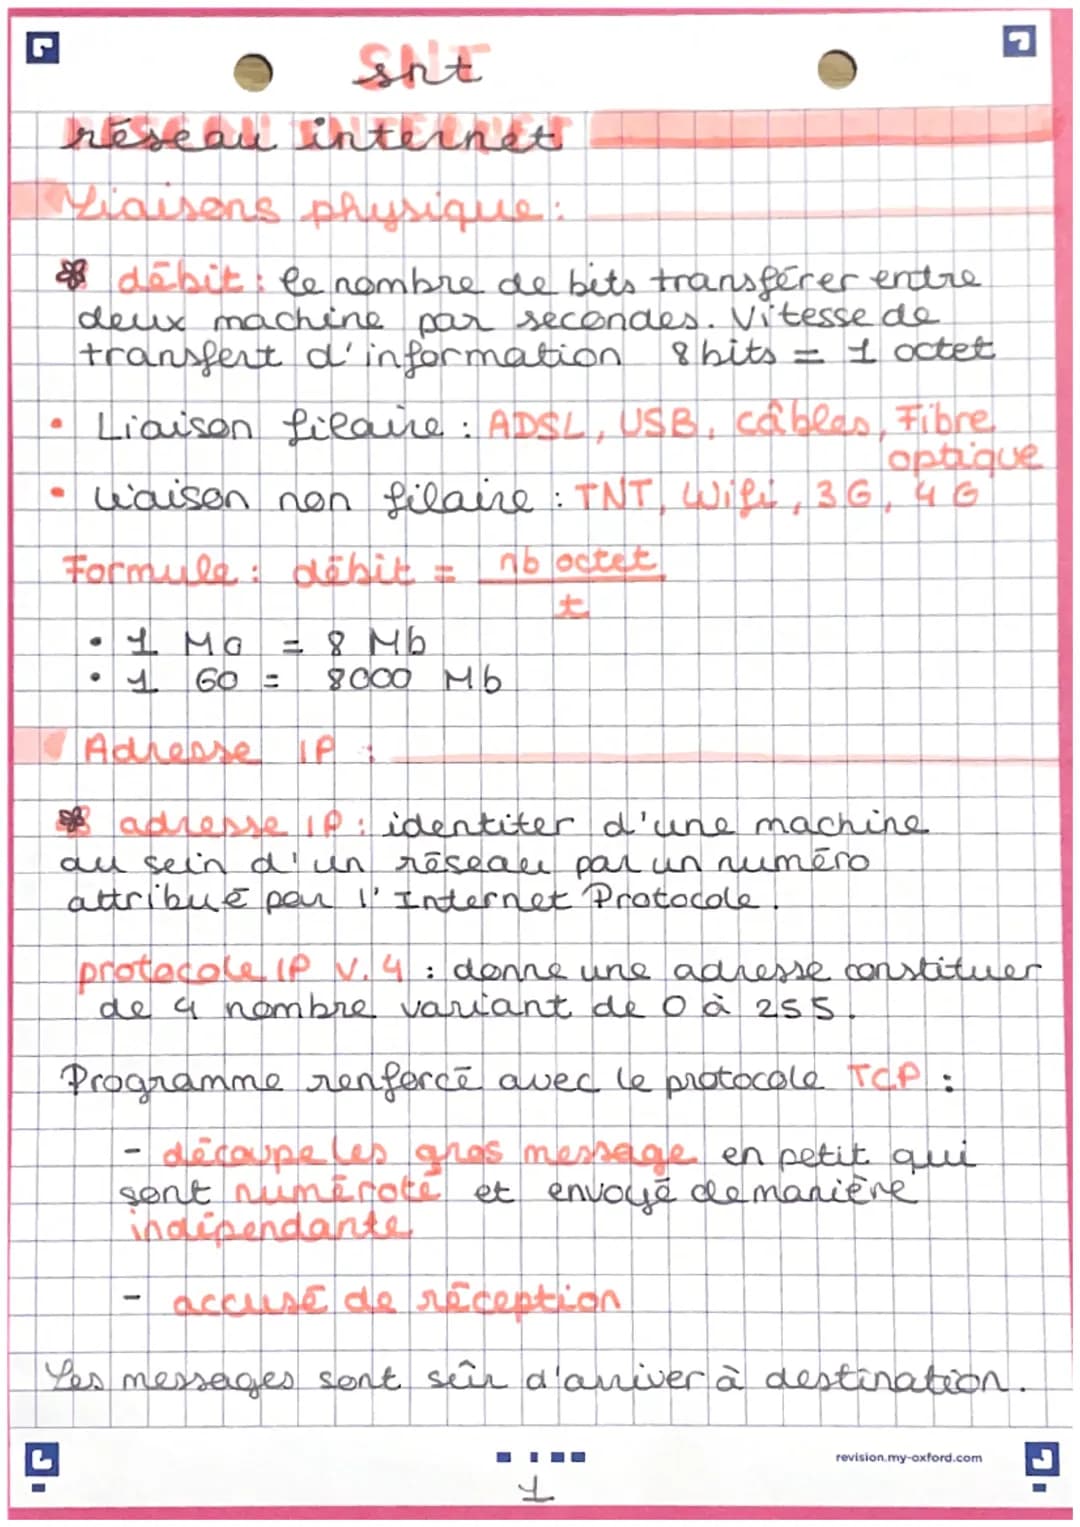 SNT
snt
RÉSEAU INTERNET
réseau internet
Liaisons physique :
débit : le nombre de bits transférer entre
deux machine par secondes. Vitesse de
transfert d'information 8 bits = 1 octet
• Liaison filaire : ADSL, USB, câbles, Fibre
optique
• Liaison non filaire : TNT, Wifi, 3G, 4G
Formule : débit = nb octet
t
• 1 MO = 8 Mb
• 1 GO = 8000 Mb
Adresse IP :
adresse IP : identiter d'une machine
au sein d'un réseau par un numéro
attribué par l'Internet Protocole.
protocole IP V.4 : donne une adresse constituer
de 4 nombre variant de 0 à 255.
Programme renforcé avec le protocole TCP :
- découpe les gros message en petit qui
sont numéroté et envoyé de manière
indépendante
- accusé de réception
Les messages sont sûr d'arriver à destination.
revision.my-oxford.com
1